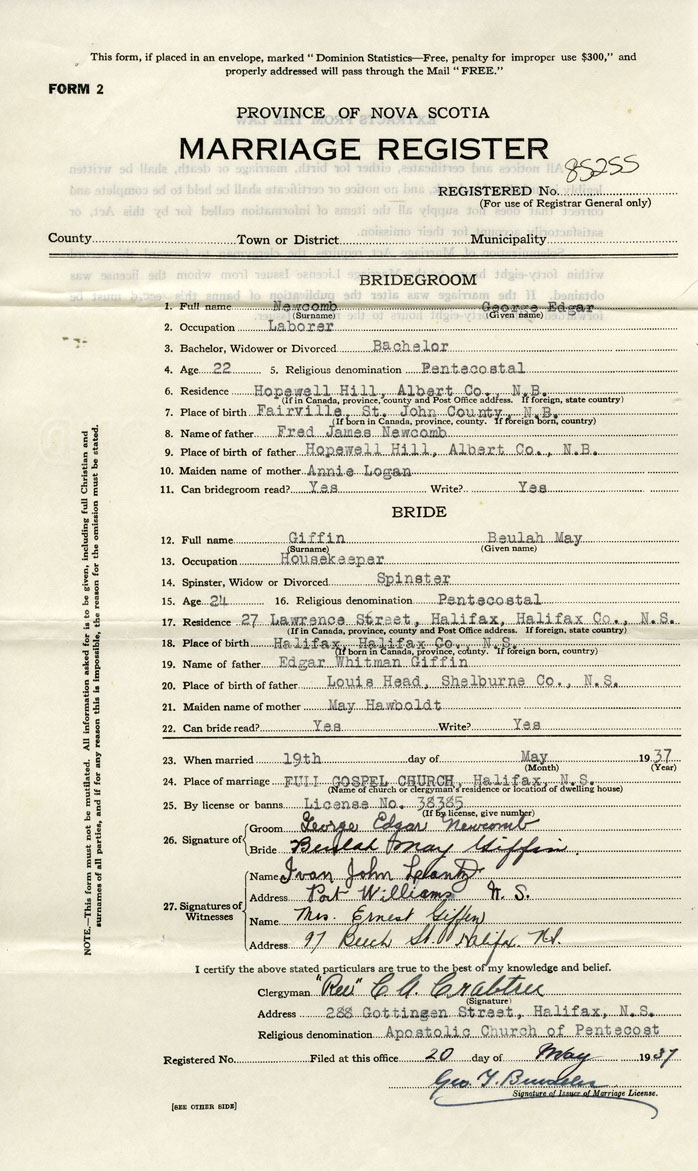 This form, if placed in an envelope, marked "Dominion Statistics—Free, penalty for improper use $300," and
properly addressed will pass through the Mail "FREE."
FORM 2
PROVINCE OF NOVA SCOTIA
MARRIAGE REGISTER
85255
REGISTERED No.
(For use of Registrar General only)
County Town or District Municipality
BRIDEGROOM
1. Full name Newcomb George Edgar
(Surname) (Given name)
2. Occupation Laborer
3. Bachelor, Widower or Divorced Bachelor
4. Age 22 5. Religious denomination Pentecostal
6. Residence Hopewell Hill, Albert Co., N.B.
(If in Canada, province, county and Post Office address. If foreign, state country)
7. Place of birth Fairville, St. John County, N.B.
(If born in Canada, province, county. If foreign born, country)
8. Name of father Fred James Newcomb
9. Place of birth of father Hopewell Hill, Albert Co., N.B.
10. Maiden name of mother Annie Logan
11. Can bridegroom read? Yes Write? Yes
BRIDE
12. Full name Giffin Beulah May
(Surname) (Given name)
13. Occupation Housekeeper
14. Spinster, Widow or Divorced Spinster
15. Age 24 16. Religious denomination Pentecostal
17. Residence 27 Lawrence Street, Halifax, Halifax Co., N.S.
(If in Canada, province, county and Post Office address. If foreign, state country)
18. Place of birth Halifax, Halifax Co., N.S.
(If born in Canada, province, county. If foreign born, country)
19. Name of father Edgar Whitman Giffin
20. Place of birth of father Louis Head, Shelburne Co., N.S.
21. Maiden name of mother May Hawboldt
22. Can bride read? Yes Write? Yes
23. When married 19th day of May 1937
(Month) (Year)
24. Place of marriage FULL GOSPEL CHURCH, Halifax, N.S.
(Name of church or clergyman's residence or location of dwelling house)
25. By license or banns License No. 38385
(If by license, give number)
26. Signature of Groom George Edgar Newcomb
Bride Beulah May Giffin
27. Signatures of Witnesses Name Ivan John
Address Port Williams N.S.
Name Mrs. Ernest Giffin
Address 97 Beech St. Halifax. N.S.
I certify the above stated particulars are true to the best of my knowledge and belief.
Clergyman "Rev" C. A. Crabtree
(Signature)
Address 288 Gottingen Street, Halifax, N.S.
Religious denomination Apostolic Church of Pentecost
Registered No. Filed at this office 20 day of May 1937
Geo. T.
Signature of Issuer of Marriage License.
[SEE OTHER SIDE]
NOTE.—This form must not be mutilated. All information asked for is to be given, including full Christian and
surnames of all parties, and if for any reason this is impossible, the reason for the omission must be stated.